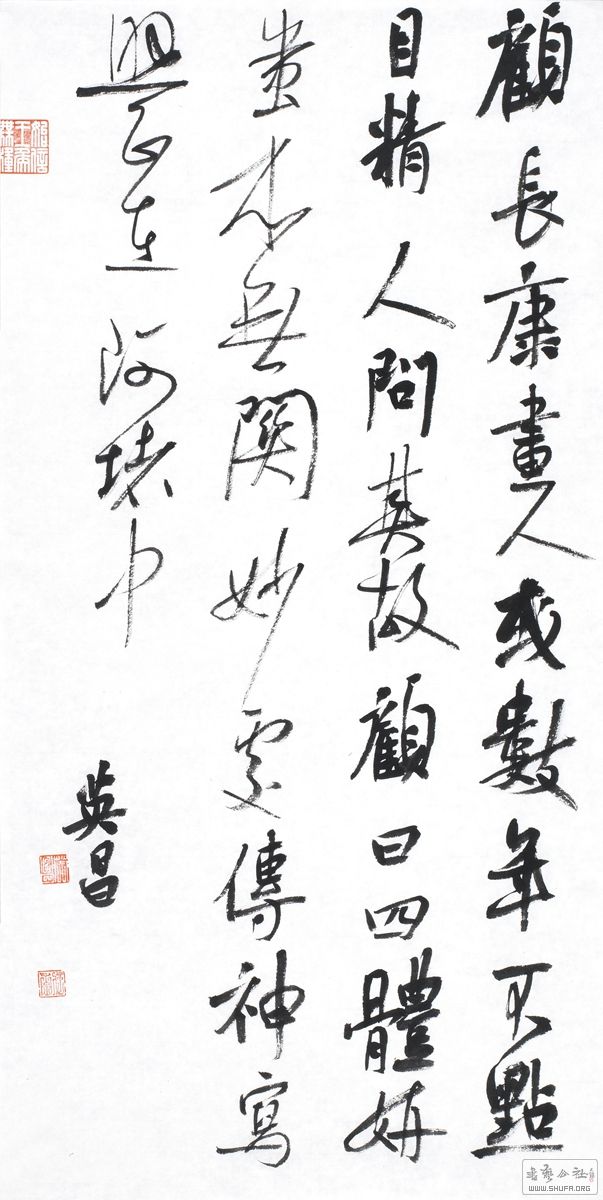 顧長康畫人或數年不點
目精人問其故顧曰四體妍
蚩本無關妙處傳神寫
照正在阿堵中
英昌
书艺公社
WWW.SHUFA.ORG